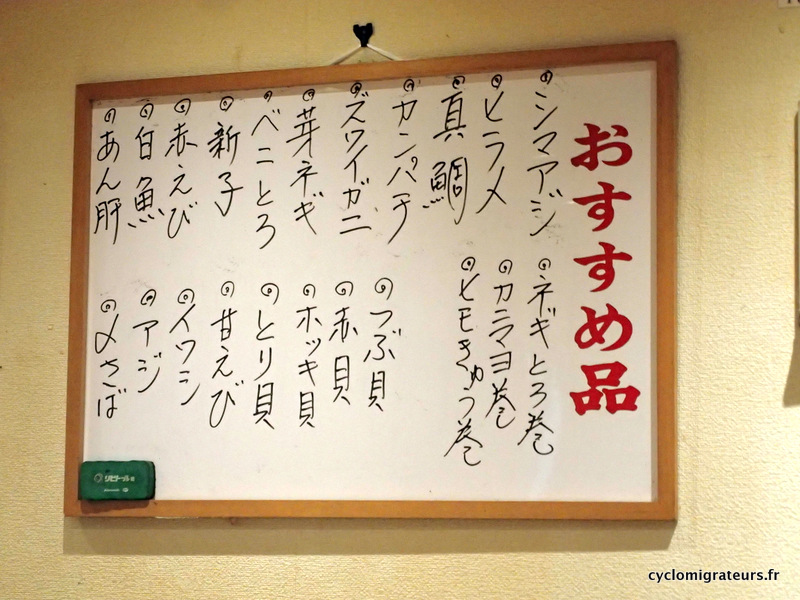 おすすめ品
シマアジ
ヒラメ
真鯛
カンパチ
ズワイガニ
芽ネギ
べにとろ
新子
赤えび
白魚
あん肝
ネギとろ巻
カニマヨ巻
ヒモきゅう巻
つぶ貝
赤貝
ホッキ貝
とり貝
甘えび
イワシ
アジ
〆さば
cyclomigrateurs.fr